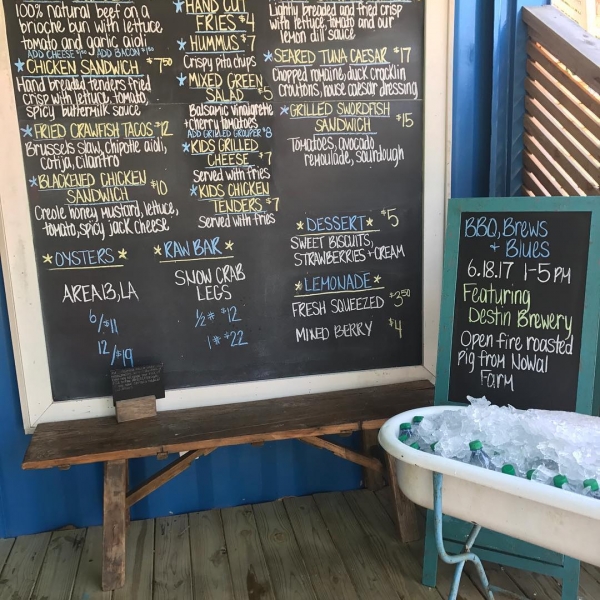 100% natural beef on a
brioche bun with lettuce
tomato and garlic aioli
ADD CHEESE $1.00 ADD BACON $1.00
*CHICKEN SANDWICH *$7.50
Hand breaded tenders fried
crisp with lettuce, tomato,
spicy buttermilk sauce
*FRIED CRAWFISH TACOS $12
Brussels slaw, chipotle aioli,
cotija, cilantro
*BLACKENED CHICKEN
SANDWICH $10
Creole honey mustard, lettuce,
tomato, spicy Jack cheese
*OYSTERS*
AREA 13, LA
6/$11
12/$19
*HAND CUT
FRIES $4
*HUMMUS $7
Crispy pita chips
*MIXED GREEN
SALAD $5
Balsamic vinaigrette
+ cherry tomatoes
ADD GRILLED GROUPER $8
*KIDS GRILLED
CHEESE $7
Served with fries
*KIDS CHICKEN
TENDERS $7
Served with fries
*RAW BAR*
SNOW CRAB
LEGS
1/2# $12
1# $22
Lightly breaded and fried crisp
with lettuce, tomato and our
lemon dill sauce
*SEARED TUNA CAESAR $17
Chopped romaine, duck cracklin
croutons, house caesar dressing
*GRILLED SWORDFISH
SANDWICH $15
Tomatoes, avocado
remoulade, sourdough
*DESSERT* $5
SWEET BISCUITS,
STRAWBERRIES + CREAM
*LEMONADE*
FRESH SQUEEZED $3.50
MIXED BERRY $4
BBQ, Brews
+ Blues
6.18.17 1-5 PM
Featuring
Destin Brewery
Open fire roasted
pig from NoWal
Farm